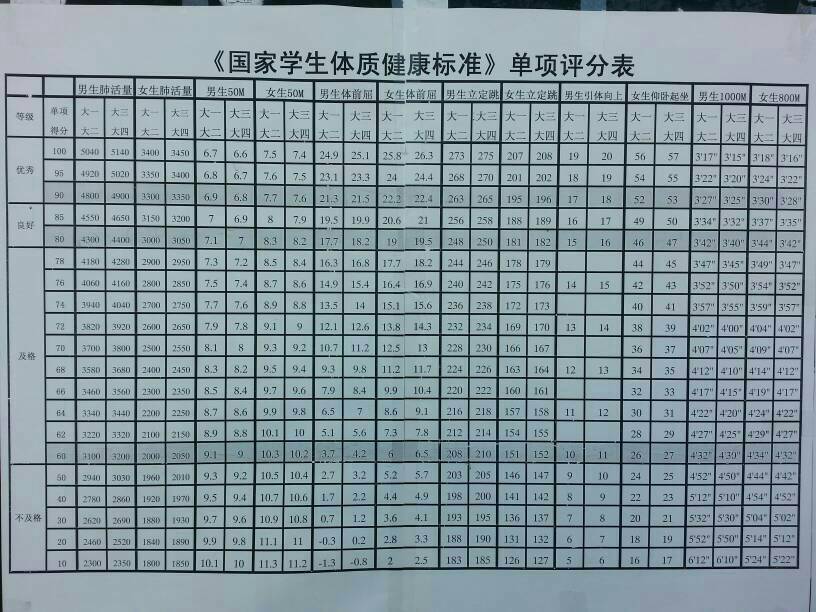 《国家学生体质健康标准》单项评分表
男生肺活量 女生肺活量 男生50M 女生50M 男生体前屈 女生体前屈 男生立定跳 女生立定跳 男生引体向上 女生仰卧起坐 男生1000M 女生800M
等级 单项 大一 大三 大一 大三 大一 大三 大一 大三 大一 大三 大一 大三 大一 大三 大一 大三 大一 大三 大一 大三 大一 大三 大一 大三
得分 大二 大四 大二 大四 大二 大四 大二 大四 大二 大四 大二 大四 大二 大四 大二 大四 大二 大四 大二 大四 大二 大四 大二 大四
100 5040 5140 3400 3450 6.7 6.6 7.5 7.4 24.9 25.1 25.8 26.3 273 275 207 208 19 20 56 57 3'17" 3'15" 3'18" 3'16"
优秀 95 4920 5020 3350 3400 6.8 6.7 7.6 7.5 23.1 23.3 24 24.4 268 270 201 202 18 19 54 55 3'22" 3'20" 3'24" 3'22"
90 4800 4900 3300 3350 6.9 6.8 7.7 7.6 21.3 21.5 22.2 22.4 263 265 195 196 17 18 52 53 3'27" 3'25" 3'30" 3'28"
良好 85 4550 4650 3150 3200 7 6.9 8 7.9 19.5 19.9 20.6 21 256 258 188 189 16 17 49 50 3'34" 3'32" 3'37" 3'35"
80 4300 4400 3000 3050 7.1 7 8.3 8.2 17.7 18.2 19 19.5 248 250 181 182 15 16 46 47 3'42" 3'40" 3'44" 3'42"
78 4180 4280 2900 2950 7.3 7.2 8.5 8.4 16.3 16.8 17.7 18.2 244 246 178 179 44 45 3'47" 3'45" 3'49" 3'47"
76 4060 4160 2800 2850 7.5 7.4 8.7 8.6 14.9 15.4 16.4 16.9 240 242 175 176 14 15 42 43 3'52" 3'50" 3'54" 3'52"
74 3940 4040 2700 2750 7.7 7.6 8.9 8.8 13.5 14 15.1 15.6 236 238 172 173 40 41 3'57" 3'55" 3'59" 3'57"
72 3820 3920 2600 2650 7.9 7.8 9.1 9 12.1 12.6 13.8 14.3 232 234 169 170 13 14 38 39 4'02" 4'00" 4'04" 4'02"
及格 70 3700 3800 2500 2550 8.1 8 9.3 9.2 10.7 11.2 12.5 13 228 230 166 167 36 37 4'07" 4'05" 4'09" 4'07"
68 3580 3680 2400 2450 8.3 8.2 9.5 9.4 9.3 9.8 11.2 11.7 224 226 163 164 12 13 34 35 4'12" 4'10" 4'14" 4'12"
66 3460 3560 2300 2350 8.5 8.4 9.7 9.6 7.9 8.4 9.9 10.4 220 222 160 161 32 33 4'17" 4'15" 4'19" 4'17"
64 3340 3440 2200 2250 8.7 8.6 9.9 9.8 6.5 7 8.6 9.1 216 218 157 158 11 12 30 31 4'22" 4'20" 4'24" 4'22"
62 3220 3320 2100 2150 8.9 8.8 10.1 10 5.1 5.6 7.3 7.8 212 214 154 155 28 29 4'27" 4'25" 4'29" 4'27"
60 3100 3200 2000 2050 9.1 9 10.3 10.2 3.7 4.2 6 6.5 208 210 151 152 10 11 26 27 4'32" 4'30" 4'34" 4'32"
50 2940 3030 1960 2010 9.3 9.2 10.5 10.4 2.7 3.2 5.2 5.7 203 205 146 147 9 10 24 25 4'52" 4'50" 4'44" 4'42"
40 2780 2860 1920 1970 9.5 9.4 10.7 10.6 1.7 2.2 4.4 4.9 198 200 141 142 8 9 22 23 5'12" 5'10" 4'54" 4'52"
不及格 30 2620 2690 1880 1930 9.7 9.6 10.9 10.8 0.7 1.2 3.6 4.1 193 195 136 137 7 8 20 21 5'32" 5'30" 5'04" 5'02"
20 2460 2520 1840 1890 9.9 9.8 11.1 11 -0.3 0.2 2.8 3.3 188 190 131 132 6 7 18 19 5'52" 5'50" 5'14" 5'12"
10 2300 2350 1800 1850 10.1 10 11.3 11.2 -1.3 -0.8 2 2.5 183 185 126 127 5 6 16 17 6'12" 6'10" 5'24" 5'22"